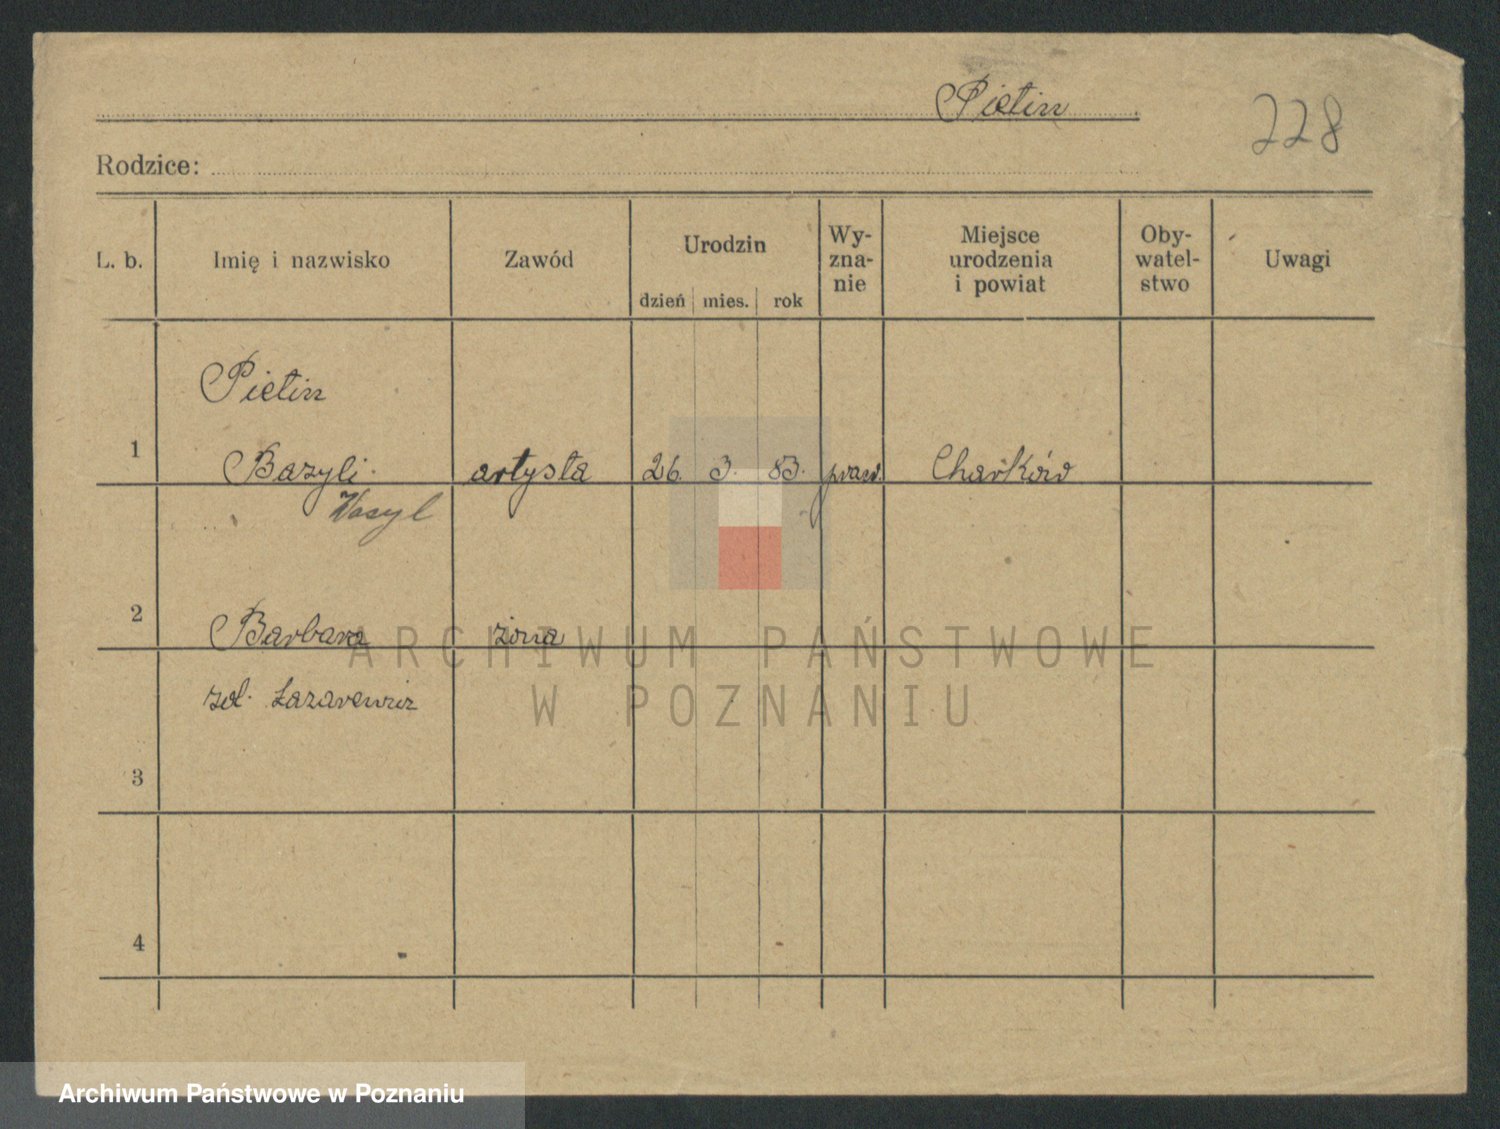 Pietin
228
Rodzice:
L. b. Imię i nazwisko Zawód Urodzin Wy-zna-nie Miejsce urodzenia i powiat Oby-watel-stwo Uwagi
dzień mies. rok
Pietin
1 Bazyli artysta 26. 3. 83. praw. Charków
Wasyl
2 Barbara żona
zol. Łazarewicz
3
4
ARCHIWUM PAŃSTWOWE
W POZNANIU
Archiwum Państwowe w Poznaniu